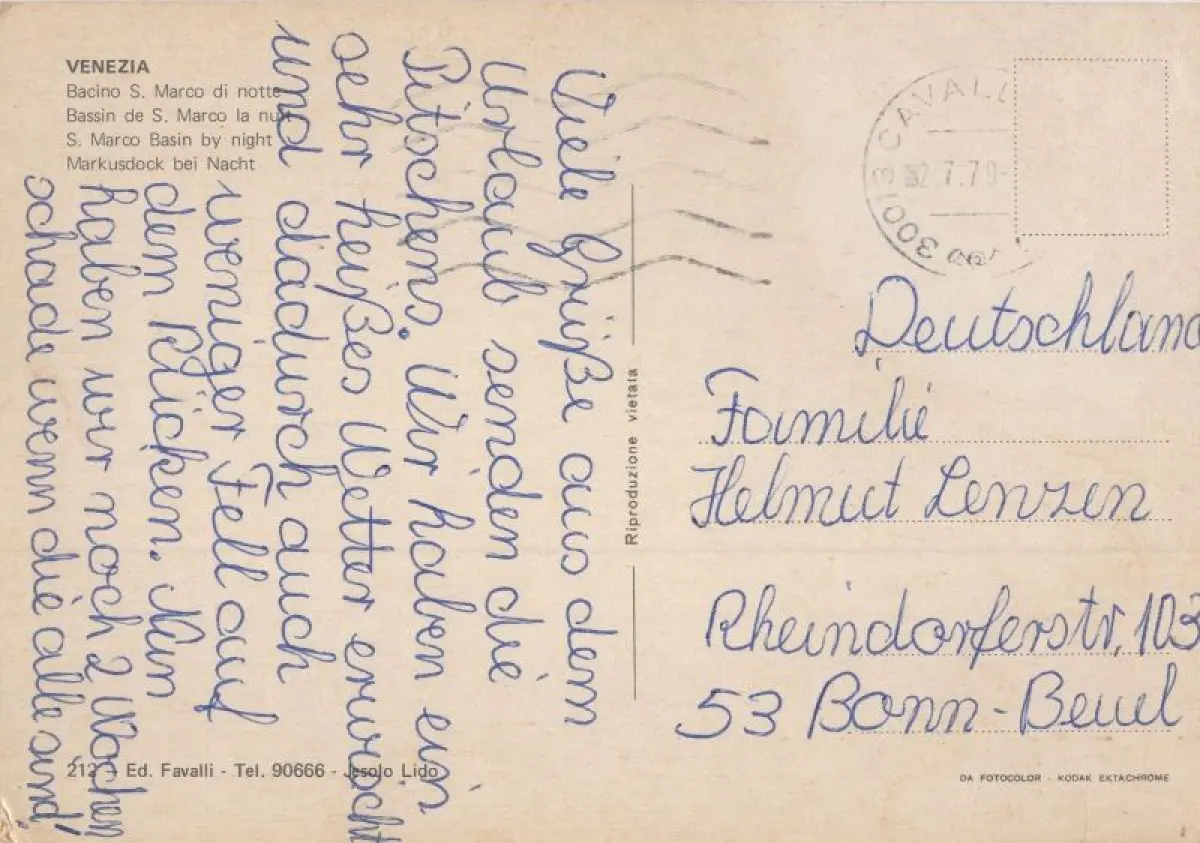 VENEZIA
Bacino S. Marco di notte
Bassin de S. Marco la nuit
S. Marco Basin by night
Markusdock bei Nacht
Viele Grüße aus dem
Urlaub senden die
Pitschens. Wir haben ein
sehr heißes Wetter erwischt
und dadurch auch
weniger Fell auf
dem Rücken. Nun
haben wir noch 2 Wochen
schade wenn die alle sind!
Riproduzione vietata
30013 CAVALL
7.7
Deutschland
Familie
Helmut Lenzen
Rheindorferstr. 103
53 Bonn-Beuel
212 - Ed. Favalli - Tel. 90666 - Jesolo Lido
DA FOTOCOLOR - KODAK EKTACHROME